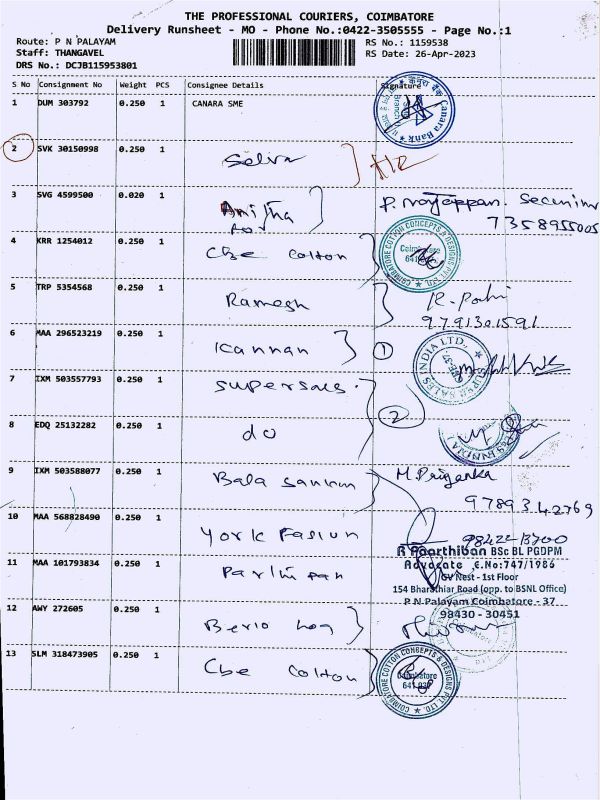 THE PROFESSIONAL COURIERS, COIMBATORE
Delivery Runsheet - MO - Phone No.:0422-3505555 - Page No.:1
Route: P N PALAYAM
RS No.: 1159538
Staff: THANGAVEL
RS Date: 26-Apr-2023
DRS No.: DCJB115953801
S No Consignment No Weight PCS Consignee Details Signature
1 DUM 303792 0.250 1 CANARA SME
Canara Bank
2 SVK 30150998 0.250 1 Selva
3 SVG 4599500 0.020 1 Anitha
7358955005
4 KRR 1254012 0.250 1 Cbe Cotton
COIMBATORE COTTON CONCEPTS & DESIGNS PVT LTD.
Coimbatore
5 TRP 5354568 0.250 1 Ramesh
9791301591
6 MAA 296523219 0.250 1 Kannan 1
SUPER SALES INDIA LTD.,
7 IXM 503557793 0.250 1 Supersales
2
8 EDQ 25132282 0.250 1 do
9 IXM 503588077 0.250 1 Bala
M. Priyanka
9789342769
10 MAA 568828490 0.250 1 York
R Paarthiban BSc BL PGDPM
11 MAA 101793834 0.250 1
Advocate E.No:747/1986
GV Nest - 1st Floor
154 Bharathiar Road (opp. to BSNL Office)
P N Palayam Coimbatore - 37
98430 - 30451
12 AWY 272605 0.250 1
13 SLM 318473905 0.250 1 Cbe Cotton
COIMBATORE COTTON CONCEPTS & DESIGNS PVT LTD.
Coimbatore
641 037